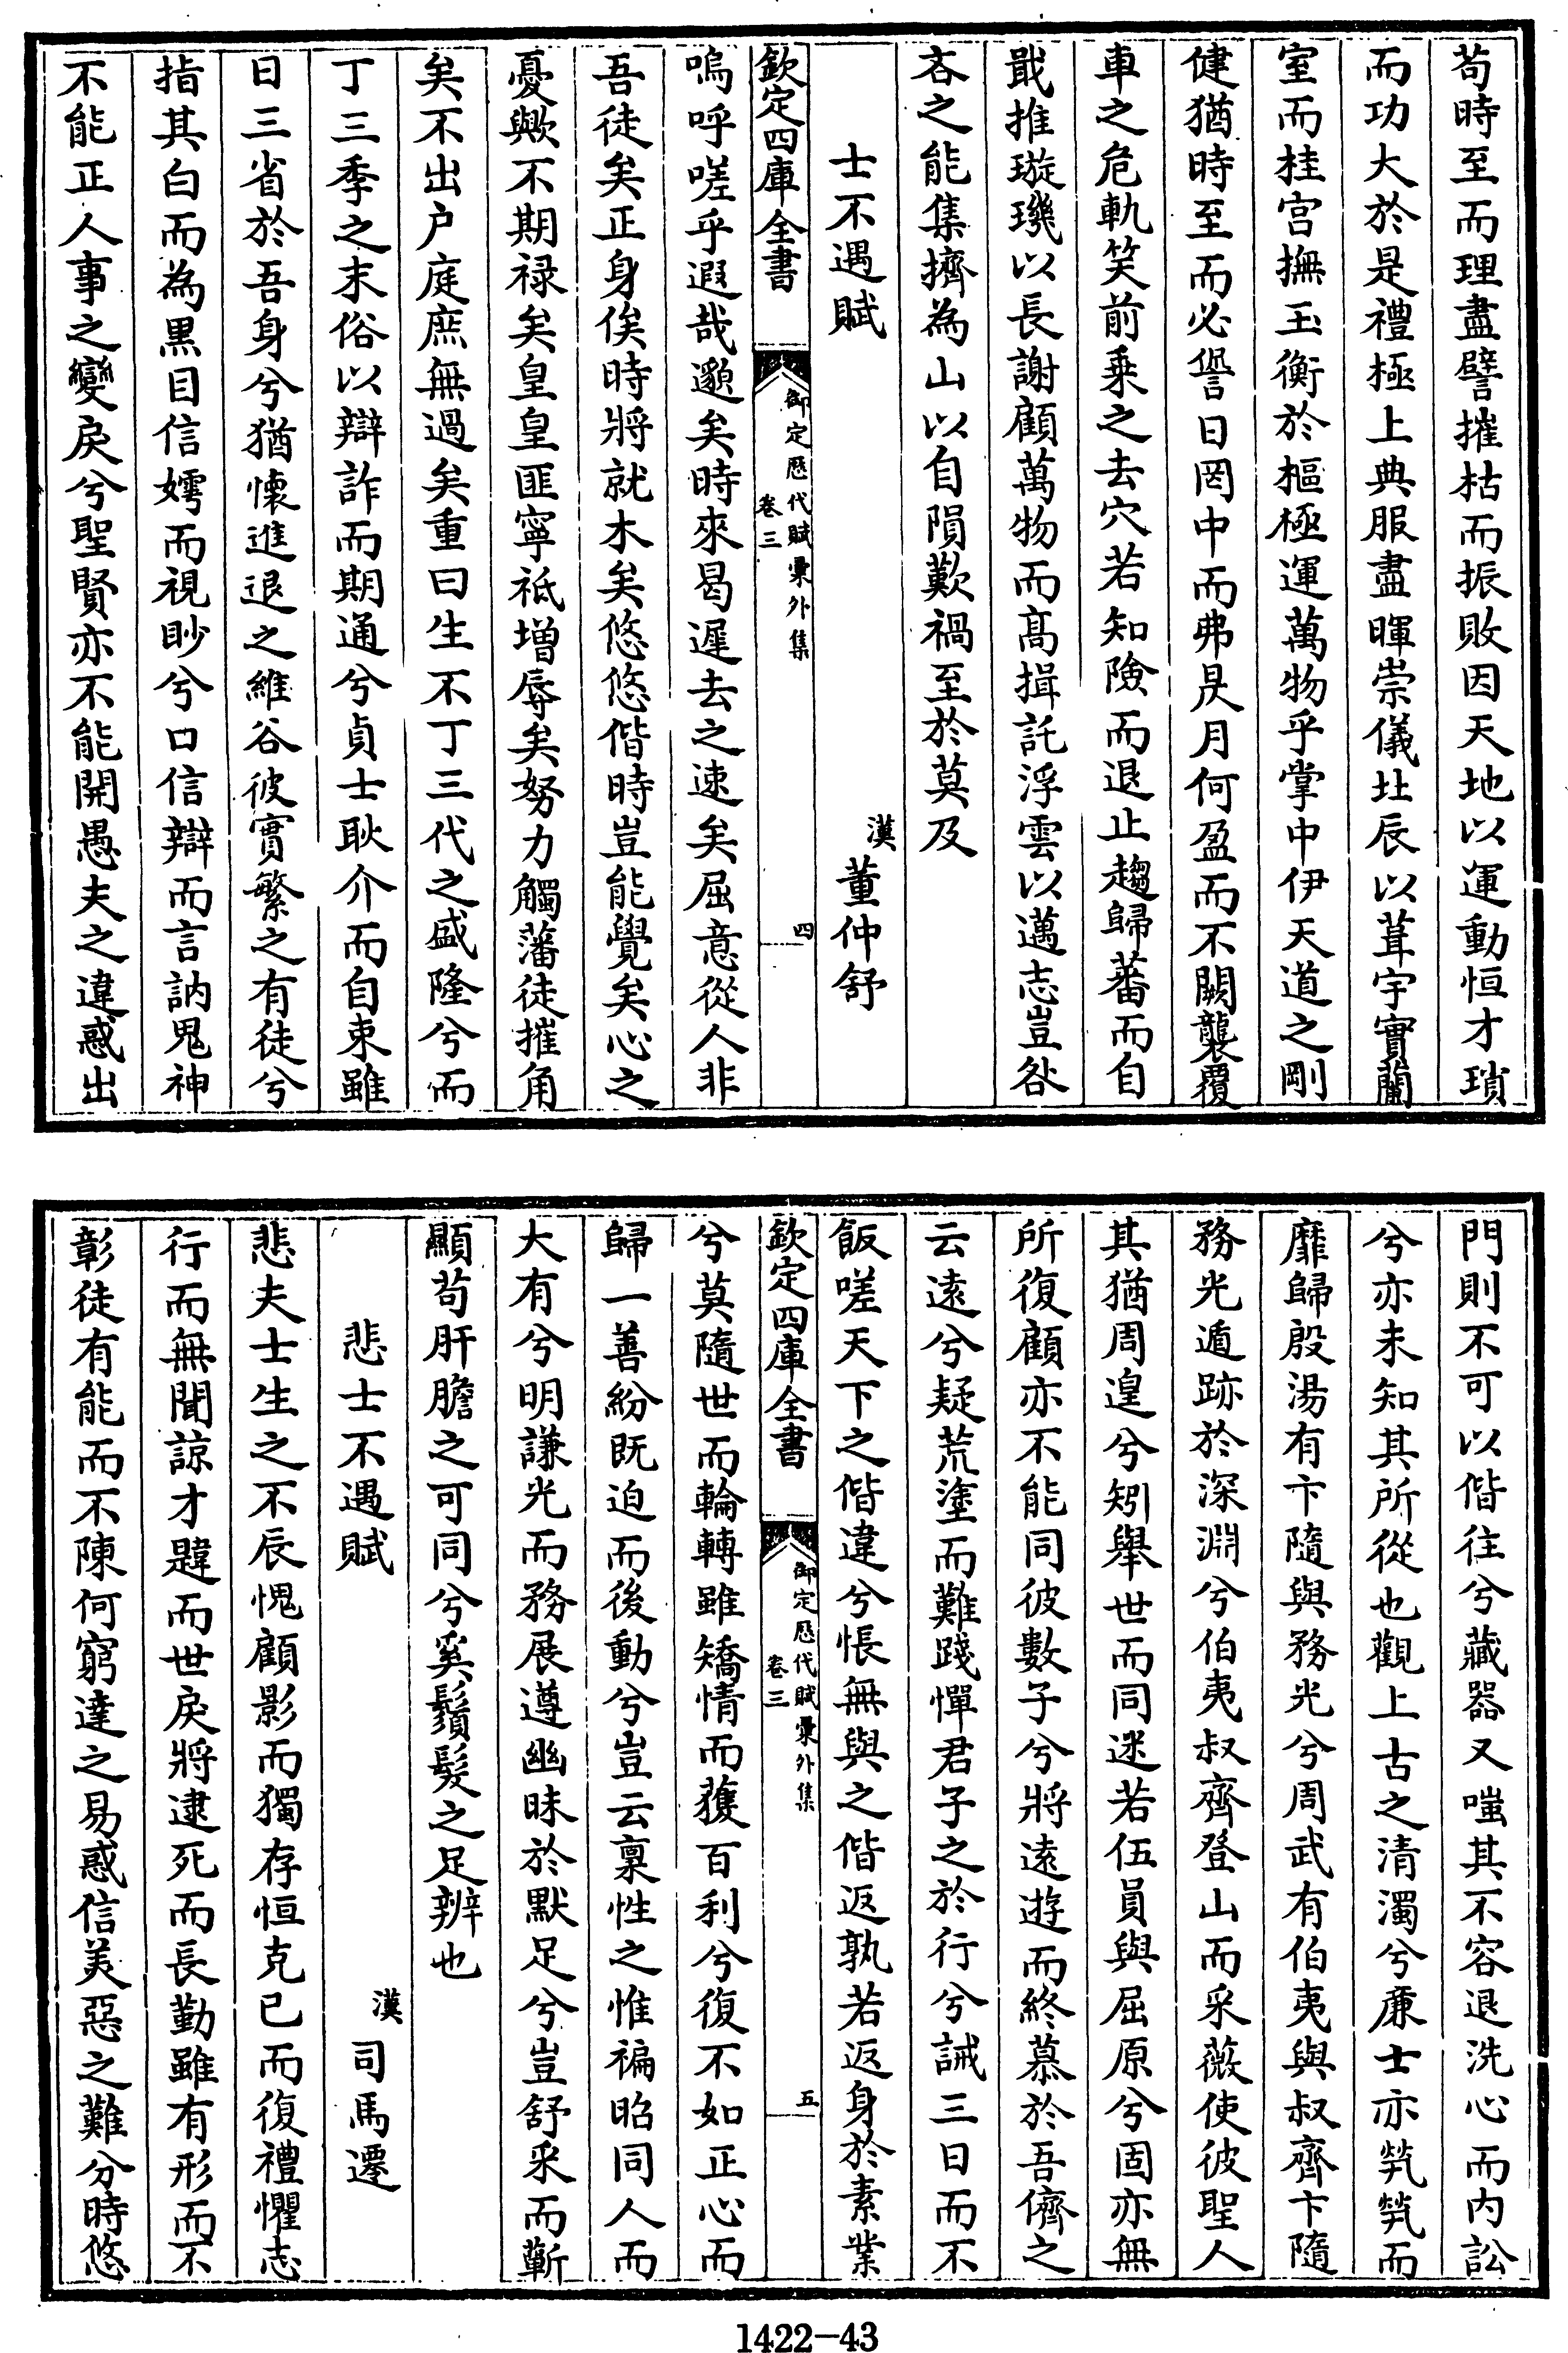 苟時至而理盡譬摧枯而振敗因天地以運動恒才瑣
而功大於是禮極上典服盡暉崇儀北辰以葺宇實蘭
室而桂宮撫玉衡於樞極運萬物乎掌中伊天道之剛
健猶時至而必諐日罔中而弗昃月何盈而不闕襲覆
車之危軌笑前乘之去穴若知險而退止趨歸蕃而自
戢推璇璣以長謝顧萬物而高揖託浮雲以邁志豈咎
吝之能集擠為山以自隕歎禍至於莫及
士不遇賦
漢
董仲舒
欽定四庫全書
御定歷代賦彙外集
卷三
四
嗚呼嗟乎遐哉邈矣時來曷遲去之速矣屈意從人非
吾徒矣正身俟時將就木矣悠悠偕時豈能覺矣心之
憂歟不期祿矣皇皇匪寧祗增辱矣努力觸藩徒摧角
矣不出户庭庶無過矣重曰生不丁三代之盛隆兮而
丁三季之末俗以辯詐而期通兮貞士耿介而自束雖
日三省於吾身兮猶懷進退之維谷彼實繁之有徒兮
指其白而為黒目信嫮而視眇兮口信辯而言訥鬼神
不能正人事之變戾兮聖賢亦不能開愚夫之違惑出
門則不可以偕往兮藏器又嗤其不容退洗心而内訟
兮亦未知其所從也觀上古之清濁兮亷士亦煢煢而
靡歸殷湯有卞隨與務光兮周武有伯夷與叔齊卞隨
務光遁跡於深淵兮伯夷叔齊登山而采薇使彼聖人
其猶周遑兮矧舉世而同迷若伍員與屈原兮固亦無
所復顧亦不能同彼數子兮將遠遊而終慕於吾儕之
云遠兮疑荒塗而難踐憚君子之於行兮誡三日而不
飯嗟天下之偕違兮悵無與之偕返孰若返身於素業
欽定四庫全書
御定歷代賦彙外集
卷三
五
兮莫隨世而輪轉雖矯情而獲百利兮復不如正心而
歸一善紛既迫而後動兮豈云稟性之惟褊昭同人而
大有兮明謙光而務展遵幽昧於默足兮豈舒采而蘄
顯苟肝膽之可同兮奚鬚髮之足辨也
悲士不遇賦
漢
司馬遷
悲夫士生之不辰愧顧影而獨存恒克已而復禮懼志
行而無聞諒才韙而世戾將逮死而長勤雖有形而不
彰徒有能而不陳何窮達之易惑信美惡之難分時悠
1422-43